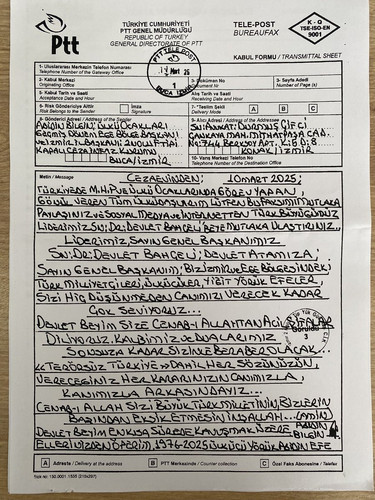 TÜRKİYE CUMHURİYETİ
PTT GENEL MÜDÜRLÜĞÜ
REPUBLIC OF TURKEY
GENERAL DIRECTORATE OF PTT
Ptt
TELE-POST
BUREAUFAX
K - Q
TSE-ISO-EN
9001
KABUL FORMU / TRANSMITTAL SHEET
1- Uluslararası Merkezin Telefon Numarası
Telephone Number of the Gateway Office
2- Kabul Merkezi
Originating Office
3- Doküman No
Document Nr
5- Sayfa Adedi
Number of Page(s)
PTT TELE POST
Mart 25
BUCA İZMİR
Kabul Tarih ve Saati
Acceptance Date and Hour
Alış Tarih ve Saati
Receiving Date and Hour
Risk Gönderciye Aittir
Risk Belongs to the Sender
İmza
Signature
Teslim Şekli
Delivery Mode
A
B
C
8- Gönderici Adresi / Address of the Sender
9- Alıcı Adresi / Address of the Addressee
ADİDİN BİLGİN, ÜLKÜ OCAKLARI
GEÇMİŞ DÖNEM EGE BÖLGE BAŞKANI
VE İZMİR İL BAŞKANI 2 NOLU F TİPİ
KAPALI CEZA İNFAZ KURUMU
BUCA/İZMİR
ÇANKAYA MAH. MİTHATPAŞA CAD.
NO: 744 BERKSOY APT. K:6 D:8
KONAK/İZMİR
10- Varış Merkezi Telefon No
Telephone Number of the Destination Office
Metin / Message
CEZAEVİNDEN; 10 MART 2025;
TÜRKİYEDE M.H.P VE ÜLKÜ OCAKLARINDA GÖREV YAPAN,
GÖNÜL VEREN TÜM ÜLKÜDAŞLARIM LÜTFEN BU FAKSIMI MUTLAKA
PAYLAŞINIZ VE SOSYAL MEDYA VE İNTERNETTEN TÜRK BÜYÜĞÜMÜZ
LİDERİMİZ SN: DR: DEVLET BAHÇELİ BEYE MUTLAKA ULAŞTIRINIZ..
LİDERİMİZ, SAYIN GENEL BAŞKANIMIZ
SN: DR: DEVLET BAHÇELİ; DEVLET ATAMIZA;
SAYIN GENEL BAŞKANIM; BİZ İZMİR VE EGE BÖLGESİNDEKİ
TÜRK MİLLİYETÇİLERİ, ÜLKÜCÜLER, YİĞİT YÖRÜK EFELER,
SİZİ HİÇ DÜŞÜNMEDEN CANIMIZI VERECEK KADAR
ÇOK SEVİYORUZ...
DEVLET BEYİM SİZE CENAB-I ALLAHTAN ACİL ŞİFALAR
DİLİYORUZ. KALBİMİZ VE DUALARIMIZ
SONSUZA KADAR SİZİNLE BERABER OLACAK...
Görüldü
3
«TERÖRSÜZ TÜRKİYE» DAHİL HER SÖZÜNÜZÜN,
VERECEĞİNİZ HER KARARINIZIN CANIMIZLA,
KANIMIZLA ARKASINDAYIZ...
CENAB-I ALLAH SİZİ BÜYÜK TÜRK MİLLETİNİN, BİZLERİN
BAŞINDAN EKSİK ETMESİN İNŞALLAH... (AMİN)
DEVLET BEYİM EN KISA SÜREDE KAVUŞMAK ÜZERE
ELLERİNİZDEN ÖPERİM, 1976-2025 ÜLKÜCÜ YÖRÜK ABİDİN EFE
ABİDİN
BİLGİN
A Adreste / Delivery at the address
B PTT Merkezinde / Counter collection
C Özel Faks Abonesine / Telefax